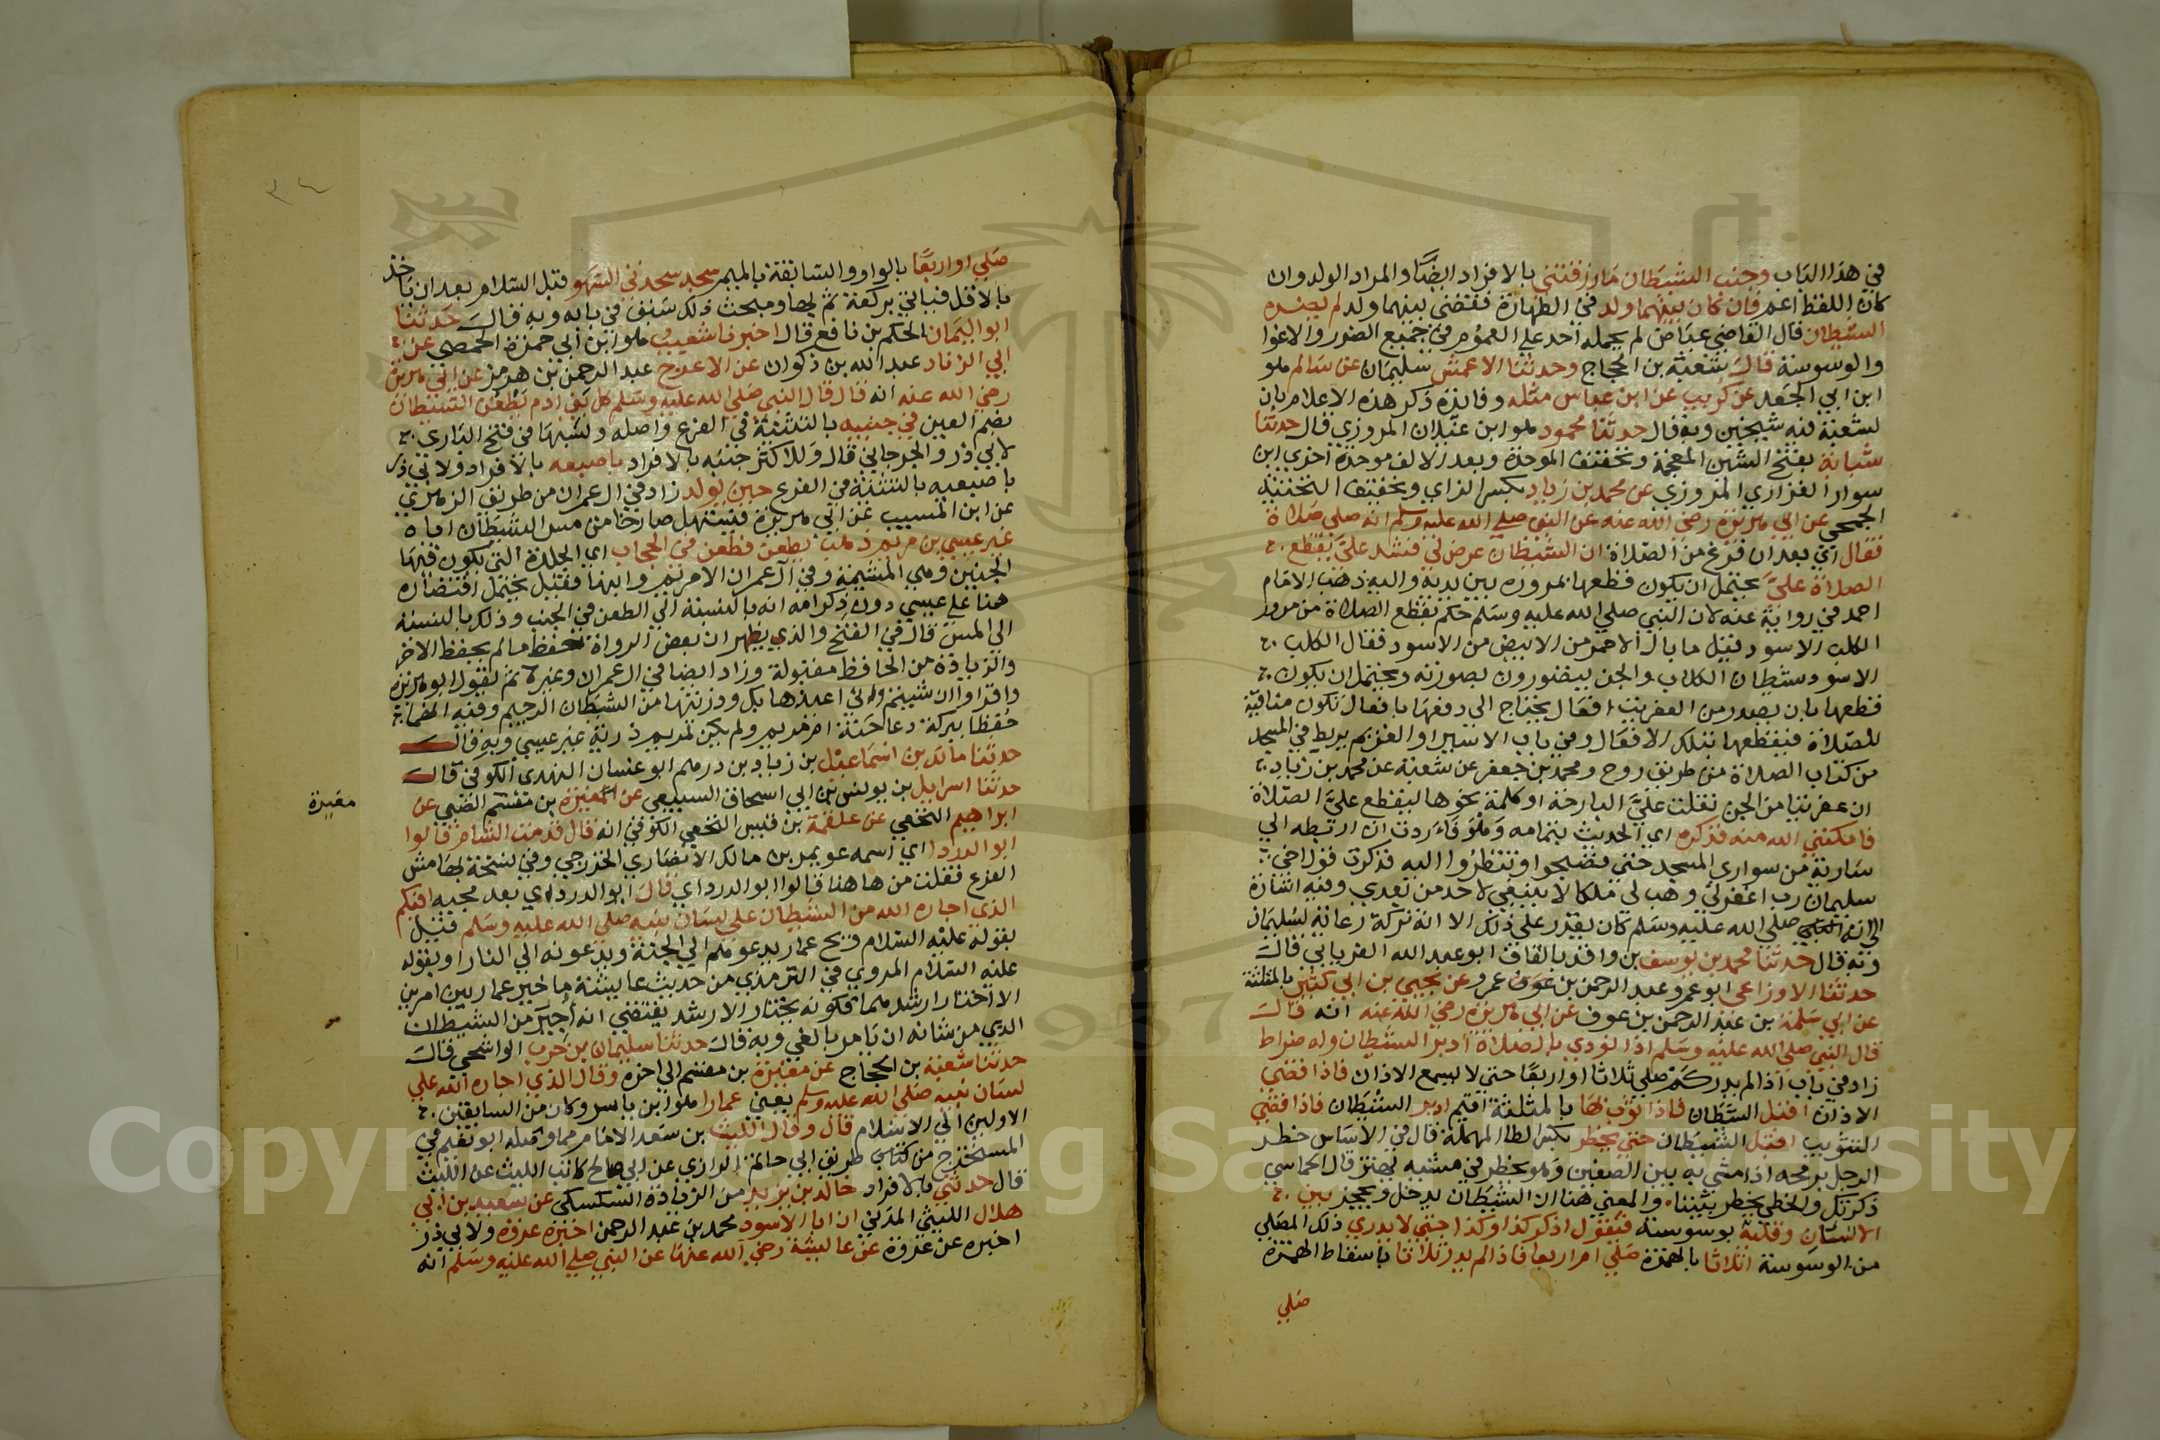 في هذا الباب وجنب الشيطان ما رزقتني بالافراد ايضا والمراد الولد وان
كان اللفظ اعم فان كان بينهما ولد في الطهارة فقضي بينهما ولد لم يضره
الشيطان قال القاضي عياض لم يحمله احد علي العموم في جميع الضرر والاغوا
والوسوسة قال شعبة بن الحجاج وحدثنا الاعمش سليمان عن سالم هو
ابن ابي الجعد عن كريب عن ابن عباس مثله وفائدة ذكر هذه الاعلام بان
لشعبة فيه شيخين وبه قال حدثنا محمود هو ابن غيلان المروزي قال حدثنا
شبابة بفتح الشين المعجمة وتخفيف الموحدة وبعد الالف موحدة اخري ابن
سوار الفزاري المروزي عن محمد بن زياد بكسر الزاي وتخفيف التحتية
الجمحي عن ابي هريرة رضي الله عنه عن النبي صلي الله عليه وسلم انه صلي صلاة
فقال اي بعد ان فرغ من الصلاة ان الشيطان عرض لي فشد علي يقطع
الصلاة علي يحتمل ان يكون قطعها بمروره بين يديه واليه ذهب الامام
احمد في رواية عنه لان النبي صلي الله عليه وسلم حكم بقطع الصلاة من مرور
الكلب الاسود فقيل ما بال الاحمر من الابيض من الاسود فقال الكلب
الاسود شيطان الكلاب والجن يتصورون بصورته ويحتمل ان يكون
قطعها بان يصدر من العفريت افعال يحتاج الي دفعها بافعال تكون منافية
للصلاة فيقطعها بتلك الافعال وفي باب الاسير او الغريم يربط في المسجد
من كتاب الصلاة من طريق روح ومحمد بن جعفر عن شعبة عن محمد بن زياد
ان عفريتا من الجن تفلت علي البارحة او كلمة نحوها ليقطع علي الصلاة
فامكنني الله منه فذكره اي الحديث بتمامه وهو فاردت ان اربطه الي
سارية من سواري المسجد حتي تصبحوا وتنظروا اليه فذكرت قول اخي
سليمان رب اغفر لي وهب لي ملكا لا ينبغي لاحد من بعدي وفيه اشارة
الي انه صلي الله عليه وسلم كان يقدر علي ذلك الا انه تركه رعاية لسليمان
وبه قال حدثنا محمد بن يوسف بن واقد بالقاف ابو عبد الله الفريابي قال
حدثنا الاوزاعي ابو عمرو عبد الرحمن بن عوف عمرو عن يحيي بن ابي كثير بالمثلثة
عن ابي سلمة بن عبد الرحمن بن عوف عن ابي هريرة رضي الله عنه انه قال
قال النبي صلي الله عليه وسلم اذا نودي بالصلاة ادبر الشيطان وله ضراط
زاد في باب اذا لم يدر كم صلي ثلاثا او اربعا حتي لا يسمع الاذان فاذا قضي
الاذان اقبل الشيطان فاذا ثوب بها بالمثلثة اقيم ادبر الشيطان فاذا قضي
التثويب اقبل الشيطان حتي يخطر بكسر الطا المهملة قال في الاساس خطر
الرجل برمحه اذا مشي به بين الصفين وهو يخطر في مشيه يهتز قال الحماسي
ذكرتك والخطي يخطر بيننا والمعني هنا ان الشيطان يدخل ويحجز بين
الانسان وقلبه بوسوسته فيقول اذكر كذا وكذا حتي لا يدري ذلك المصلي
من الوسوسة اثلاثا بالهمزة صلي ام اربعا فاذا لم يدر ثلاثا باسقاط الهمزة
صلي
٣٤
صلي او اربعا بالواو والسابقة بالميم سجد سجدتي السهو قبل السلام بعد ان ياخذ
بالاقل فياتي بركعة تتم بها ومبحث ذلك سبق في بابه وبه قال حدثنا
ابو اليمان الحكم بن نافع قال اخبرنا شعيب هو ابن ابي حمزة الحمصي عن
ابي الزناد عبد الله بن ذكوان عن الاعرج عبد الرحمن بن هرمز عن ابي هريرة
رضي الله عنه انه قال قال النبي صلي الله عليه وسلم كل بني ادم يطعن الشيطان
بضم العين في جنبيه بالتثنية في الفرع واصله ونسبها في فتح الباري
لابي ذر والجرجاني قال وللاكثر جنبه بالافراد باصبعه بالافراد ولابي ذر
باصبعيه بالتثنية في الفرع حين يولد زاد في ال عمران من طريق الزهري
عن ابن المسيب عن ابي هريرة فيستهل صارخا من مس الشيطان اياه
غير عيسي بن مريم ذهب يطعن فطعن في الحجاب اي الجلدة التي يكون فيها
الجنين وهي المشيمة وفي ال عمران الا مريم وابنها فقيل يحتمل اقتصاره
هنا علي عيسي دون ذكر امه انه بالنسبة الي الطعن في الجنب وذلك بالنسبة
الي المس قال في الفتح والذي يظهر ان بعض الرواة حفظ ما لم يحفظ الاخر
والزيادة من الحافظ مقبولة وزاد ايضا في ال عمران وغيره ثم يقول ابو هريرة
واقراوا ان شيتم واني اعيذها بك وذريتها من الشيطان الرجيم وفيه انهما
حفظا ببركة دعا حنة ام مريم ولم يكن لمريم ذرية غير عيسي وبه قال
حدثنا مالك بن اسماعيل بن زياد بن درهم ابو غسان النهدي الكوفي قال
حدثنا اسرايل بن يونس بن ابي اسحاق السبيعي عن المغيرة بن مقسم الضبي عن
مغيرة
ابراهيم النخعي عن علقمة بن قيس النخعي الكوفي انه قال قدمت الشام قالوا
ابو الدردا اي اسمه عويمر بن مالك الانصاري الخزرجي وفي نسخة بهامش
الفرع فقلت من هاهنا قالوا ابو الدرداي قال ابو الدرداي بعد مجيه افيكم
الذي اجاره الله من الشيطان علي لسان نبيه صلي الله عليه وسلم قيل
بقوله عليه السلام ويح عمار يدعوهم الي الجنة ويدعونه الي النار او بقوله
عليه السلام المروي في الترمذي من حديث عايشة ما خير عمار بين امرين
الا اختار ارشدهما فكونه يختار الارشد يقتضي انه اجير من الشيطان
الذي من شانه ان يامر بالغي وبه قال حدثنا سليمان بن حرب الواشحي قال
حدثنا شعبة بن الحجاج عن مغيرة بن مقسم الي اخره وقال الذي اجاره الله علي
لسان نبيه صلي الله عليه وسلم يعني عمارا هو ابن ياسر وكان من السابقين
الاولين الي الاسلام قال وقال الليث بن سعد الامام مما وصله ابو نعيم في
المستخرج من كتاب طريق ابي حاتم الرازي عن ابي صالح كاتب الليث عن الليث
قال حدثني بالافراد خالد بن يزيد من الزيادة السكسكي عن سعيد بن ابي
هلال الليثي المدني ان ابا الاسود محمد بن عبد الرحمن اخبره عروة ولابي ذر
اخبره عن عروة عن عايشة رضي الله عنها عن النبي صلي الله عليه وسلم انه
Copyright © King Saud University
1957